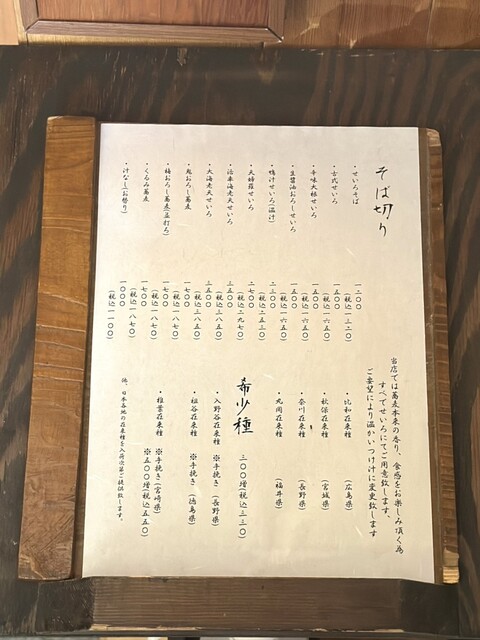 そば切り
・せいろそば
一二〇〇
(税込一三二〇)
・古式せいろ
一五〇〇
(税込一六五〇)
・辛味大根せいろ
一五〇〇
(税込一六五〇)
・生醤油おろしせいろ
一五〇〇
(税込一六五〇)
・鴨汁せいろ(温汁)
二三〇〇
(税込二五三〇)
・天婦羅せいろ
二七〇〇
(税込二九七〇)
・活車海老天せいろ
三五〇〇
(税込三八五〇)
・大海老天せいろ
三五〇〇
(税込三八五〇)
・鬼おろし蕎麦
一七〇〇
(税込一八七〇)
・梅おろし蕎麦(並打ち)
一七〇〇
(税込一八七〇)
・くるみ蕎麦
一七〇〇
(税込一八七〇)
・汁なし(お替り)
一〇〇〇
(税込一一〇〇)
当店では蕎麦本来の香り、食感をお楽しみ頂く為
すべてせいろにてご用意致します、
ご要望により温かいつけ汁に変更致します
・比和在来種 (広島県)
・秋保在来種 (宮城県)
・奈川在来種 (長野県)
・丸岡在来種 (福井県)
希少種 三〇〇増(税込三三〇)
・入野谷在来種 ※手挽き(長野県)
・祖谷在来種 ※手挽き (徳島県)
・椎葉在来種 ※手挽き(宮崎県)
※五〇〇増(税込五五〇)
他、日本各地の在来種を入荷次第ご提供致します。